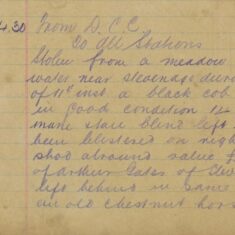 4.30 From D.C.C
To All Stations
Stolen from a meadow
water near Stevenage during
of 11th inst. a black cob
in good condition 14
mane star blind left
been blistered on righ
shod around value £
of Arthur Gates of
left behind in same
an old chestnut hors